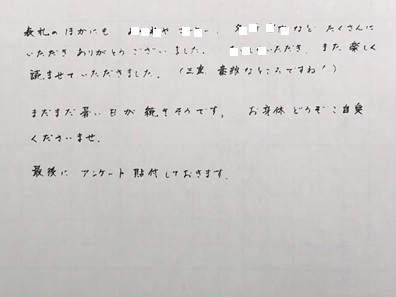 表札のほかにも や 、 など たくさんに
いただき ありがとう ございました。 いただき、また 楽しく
読ませていただきました。 (三重 素敵なところですね!)
まだまだ 暑い 日が 続きそうです。 お身体 どうぞ ご自愛
くださいませ。
最後に アンケート 貼付しておきます。